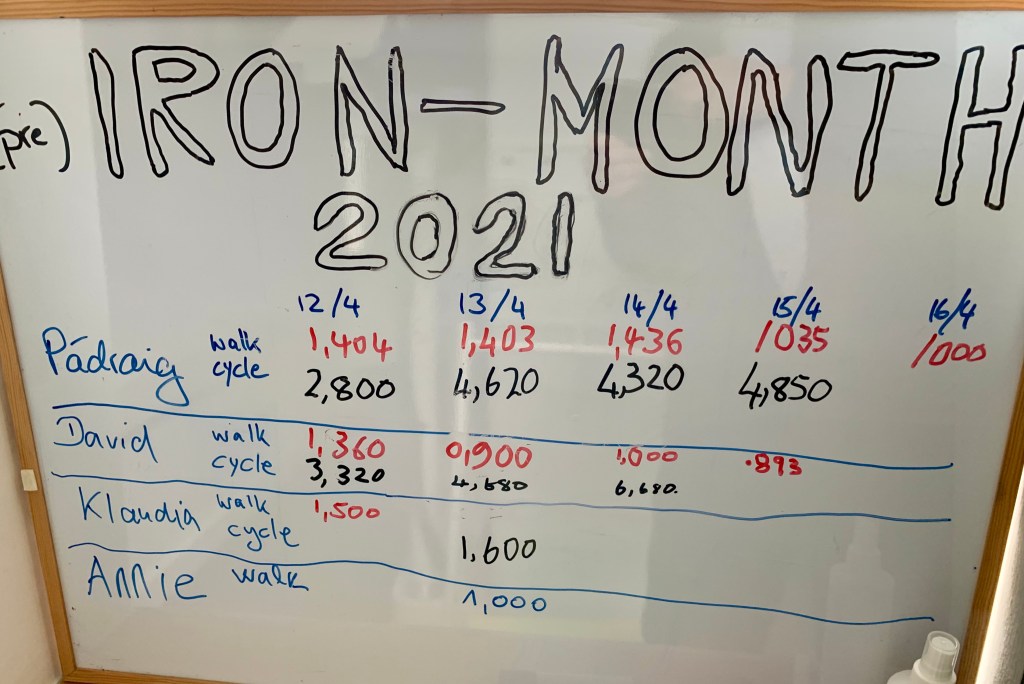 (pre) IRON-MONTH
2021
12/4 13/4 14/4 15/4 16/4
Pádraig walk 1,404 1,403 1,436 1035 1000
cycle 2,800 4,620 4,320 4,850
David walk 1,360 0,900 1,000 .893
cycle 3,320 4,680 6,680.
Klaudia walk 1,500
cycle 1,600
Annie walk 1,000